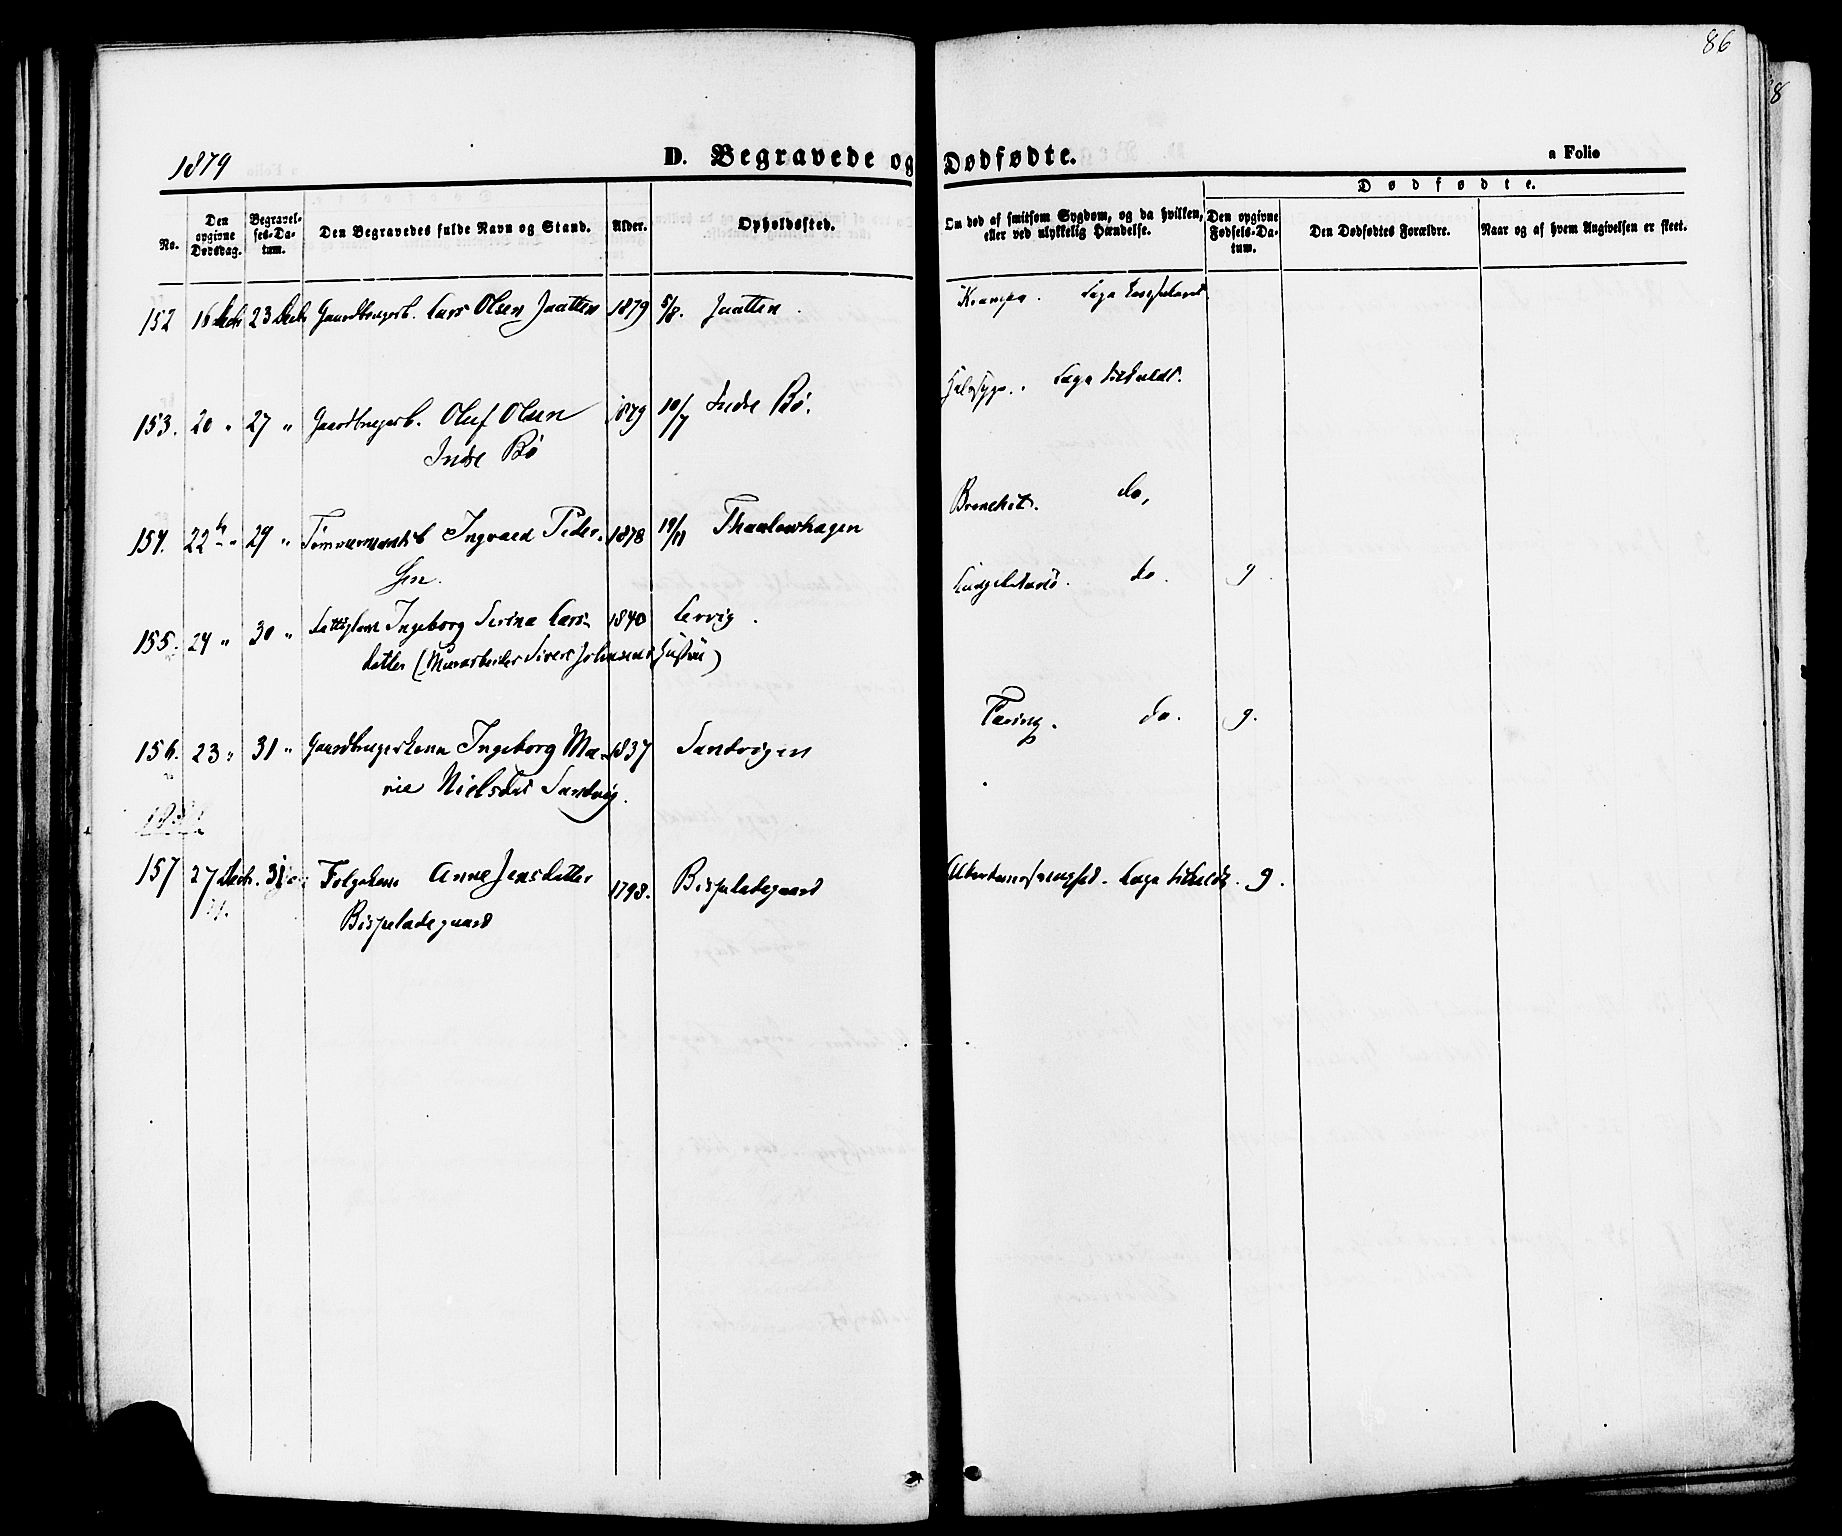 86
8
1879
D. Begravede og Dødfødte.
a Folio
Dødfødte.
No.
Den opgivne Dødsdag.
Begravelses-Datum.
Den Begravedes fulde Navn og Stand.
Alder.
Opholdssted.
Om død af smitsom Sygdom, og da hvilken, eller ved ulykkelig Hændelse.
Den opgivne Fødsels-Datum.
Den Dødfødtes Forældre.
Naar og af hvem Angivelsen er skeet.
152 16 Decbr 23 Decbr Gaardbrugerb. Lars Olsen Jaatten 1879 5/8. Jaatten. Krampe.
153. 20 " 27 " Gaardbrugerb. Oluf Olsen 1879 10/7 Indre Bø. Halssyge. Læge
Indre Bø
154. 22 " 29 " Tømmermandsb Ingvald Peder- 1878 19/11 Thaulowhagen Bronchit. do,
sen.
155. 24 " 30 " Ingeborg Serina Lars- 1840 Lervig. do. g.
datter (Murarbeider Sivert Johannes Hustru)
156. 23 " 31 " Gaardbrugerkone Ingeborg Ma- 1837 Sandvigen Tæring. do. g.
rie Nielsdtr Sandvig.
157 27 Decbr. 31 Folgekone Anne Jensdatter 1798. Bispeladegaard Alderdomssvaghed. Læge g.
Bispeladegaard